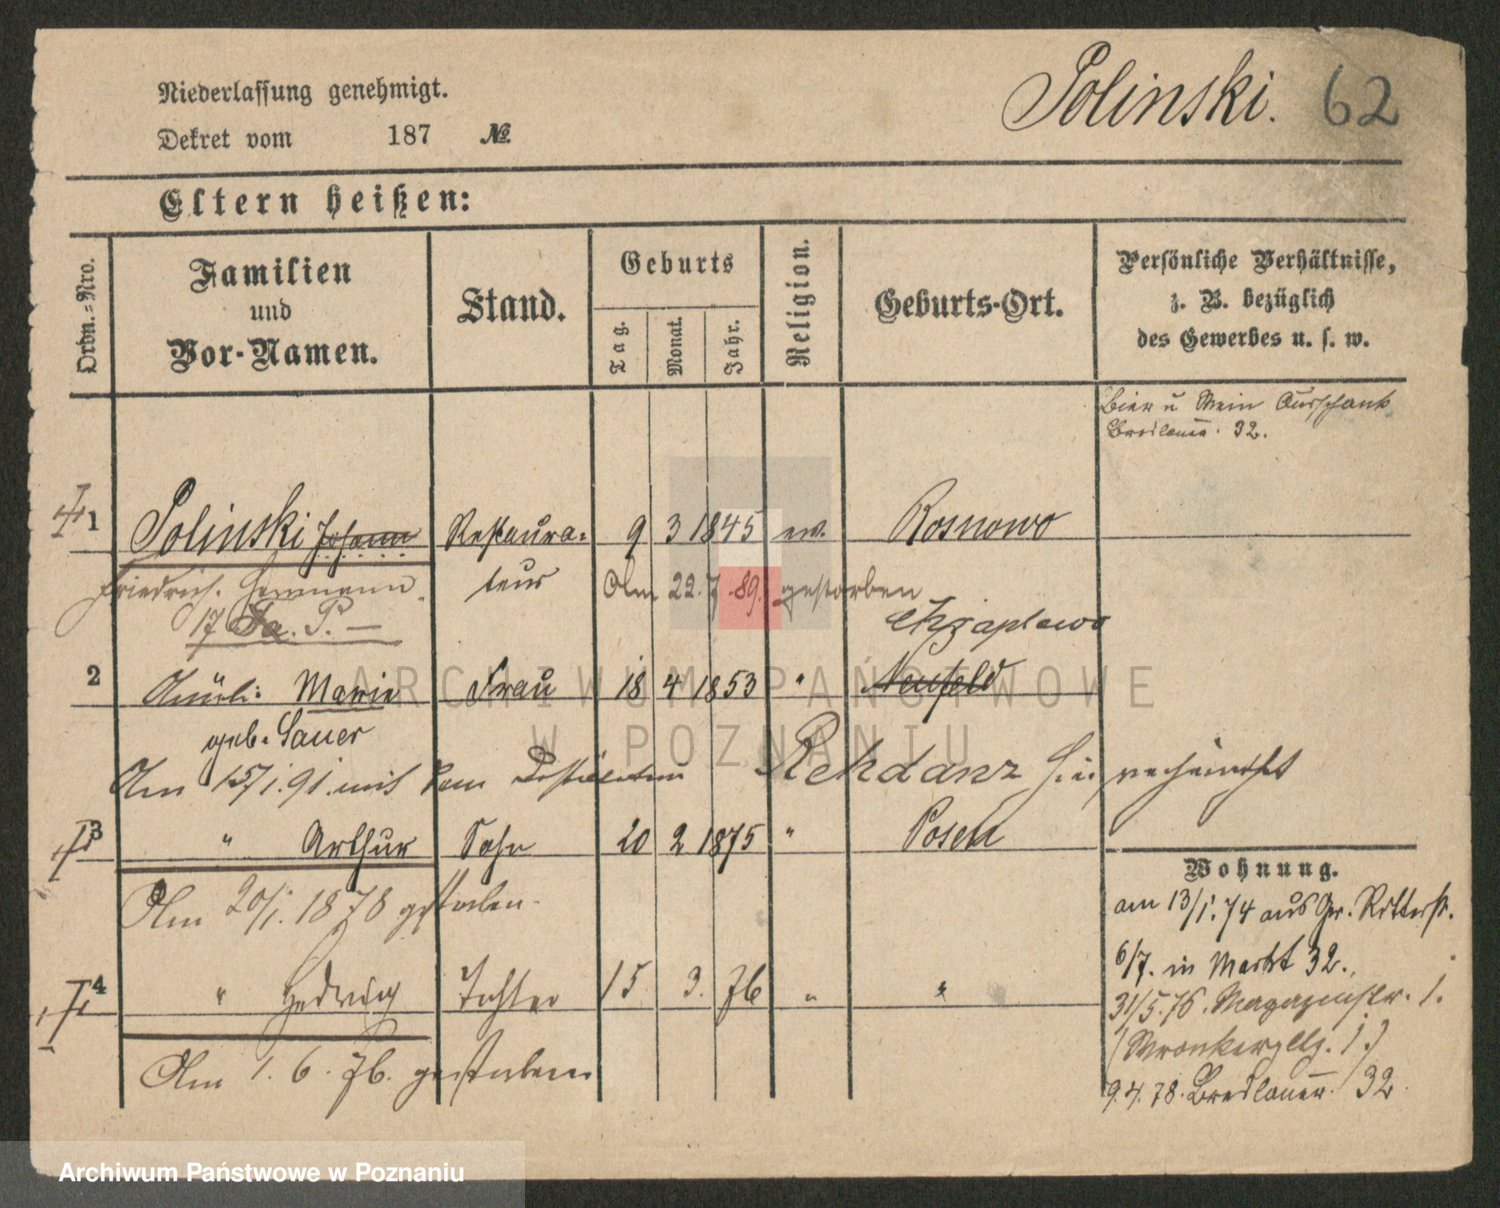 Niederlassung genehmigt.
Polinski. 62
Dekret vom 187 №
Eltern heißen:
Ordn.-Nro.
Familien
und
Vor-Namen.
Stand.
Geburts
Tag.
Monat.
Jahr.
Religion.
Geburts-Ort.
Persönliche Verhältnisse,
z. B. bezüglich
des Gewerbes u. s. w.
Bier u Wein Ausschank
Breslauer. 32.
1 Polinski Johann Restaura= 9 3 1845 ev. Rosnowo
Friedrich Hermann teur Am 22. 7. 89. gestorben
17 Fa. P. —
Chzaplewo
2 Amöli: Marie Frau 18 4 1853 " Neufeld
geb. Sauer
Am 15/1. 91. mit dem Rehdanz hier verheirathet
3 " Arthur Sohn 20 2 1875 " Posen
Am 20/1. 1878 gestorben.
4 " Hedwig Tochter 15. 3. 76 " "
Am 1. 6. 76. gestorben
Wohnung.
am 13/1. 74 aus Gr. Ritterst.
6/7. in Markt 32.
31/5. 76. Magazinstr. 1.
(Wronkerplz. 1.)
9. 4. 78. Breslauer. 32
ARCHIWUM PAŃSTWOWE
W POZNANIU
Archiwum Państwowe w Poznaniu